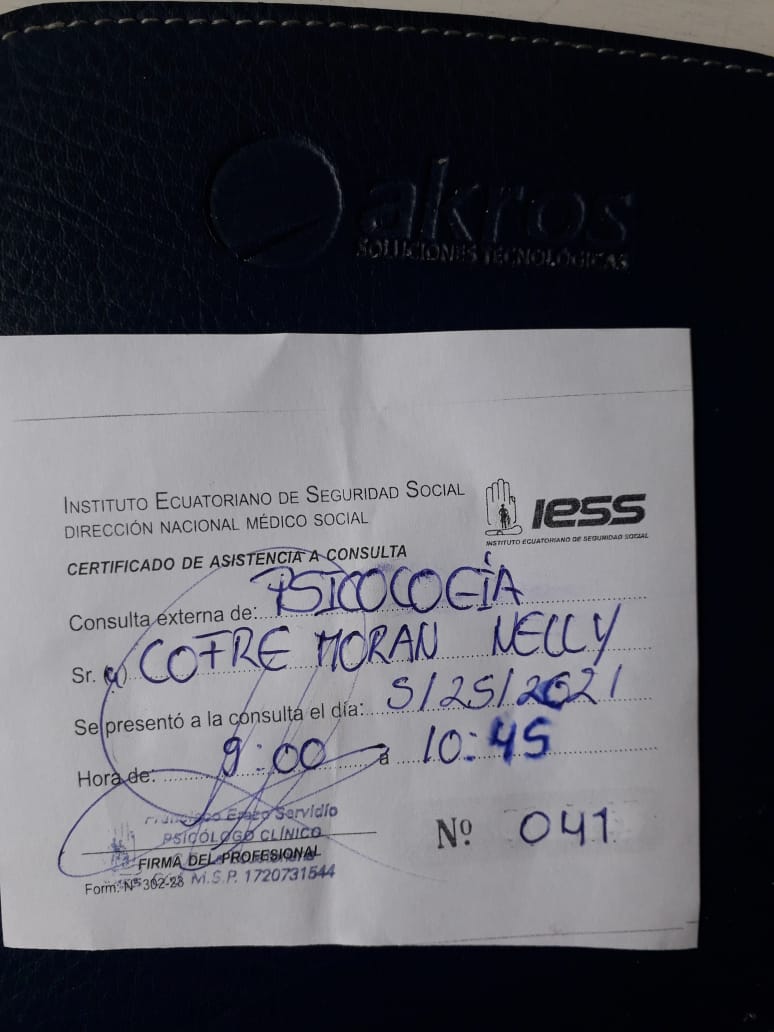 akros
SOLUCIONES TECNOLÓGICAS
INSTITUTO ECUATORIANO DE SEGURIDAD SOCIAL
DIRECCIÓN NACIONAL MÉDICO SOCIAL
IESS
INSTITUTO ECUATORIANO DE SEGURIDAD SOCIAL
CERTIFICADO DE ASISTENCIA A CONSULTA
Consulta externa de: PSICOLOGÍA
Sr. (a) COFRE MORAN NELLY
Se presentó a la consulta el día: 5/25/2021
Hora de: 9:00 a 10:45
Servidio
PSICÓLOGO CLÍNICO
Nº 041
FIRMA DEL PROFESIONAL
M.S.P. 1720731544
Form. Nº 302-28